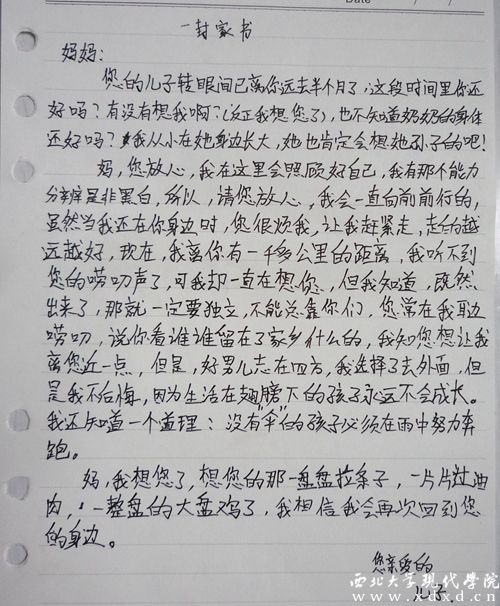 Date / /
一封家书
妈妈:
您的儿子转眼间已离你远去半个月了,这段时间里你还
好吗?有没有想我啊?(反正我想您了),也不知道奶奶的身体
还好吗?我从小在她身边长大,她也肯定会想她孙子的吧!
妈,您放心,我在这里会照顾好自己,我有那个能力
分辨是非黑白,所以,请您放心,我会一直向前前行的,
虽然当我还在你身边时,您很烦我,让我赶紧走,走的越
远越好,现在,我离你有一千多公里的距离,我听不到
您的唠叨声了,可我却一直在想您,但我知道,既然
出来了,那就一定要独立,不能总靠你们,您常在我耳边
唠叨,说你看谁谁留在了家乡什么的,我知您想让我
离您近一点,但是,好男儿志在四方,我选择了去外面,但
是我不后悔,因为生活在翅膀下的孩子永远不会成长。
我还知道一个道理:没有“伞”的孩子必须在雨中努力奔
跑。
妈,我想您了,想您的那一盘盘拉条子,一片片过油
肉,一整盘的大盘鸡了,我相信我会再次回到您
的身边。
您亲爱的
儿子
西北大学现代学院
www.xdxd.cn